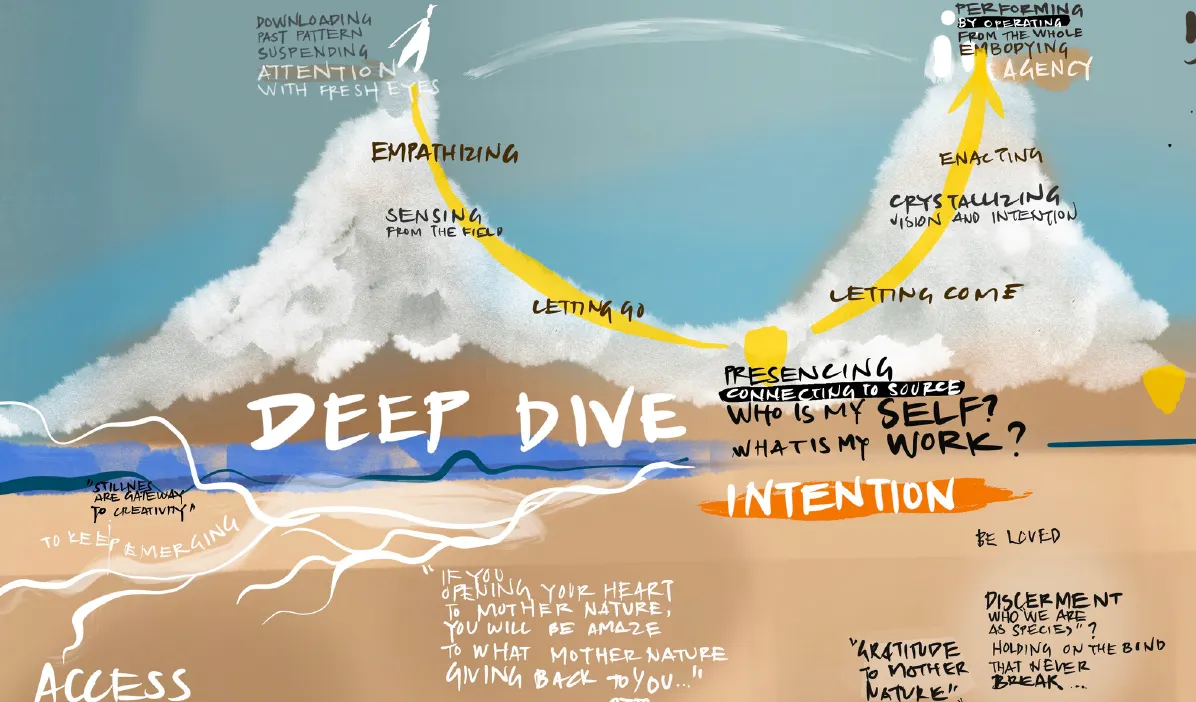 DOWNLOADING
PAST PATTERN
SUSPENDING
ATTENTION
WITH FRESH EYES
EMPATHIZING
SENSING
FROM THE FIELD
LETTING GO
PERFORMING
BY OPERATING
FROM THE WHOLE
EMBODYING
AGENCY
ENACTING
CRYSTALLIZING
VISION AND INTENTION
LETTING COME
PRESENCING
CONNECTING TO SOURCE
WHO IS MY SELF?
WHAT IS MY WORK?
DEEP DIVE
INTENTION
"STILLNES
ARE GATEWAY
TO CREATIVITY"
TO KEEP EMERGING
BE LOVED
"IF YOU
OPENING YOUR HEART
TO MOTHER NATURE,
YOU WILL BE AMAZE
TO WHAT MOTHER NATURE
GIVING BACK TO YOU..."
"GRATITUDE
TO MOTHER
NATURE"
DISCERMENT
WHO WE ARE
AS SPECIES"?
HOLDING ON THE BOND
THAT NEVER
BREAK...
ACCESS